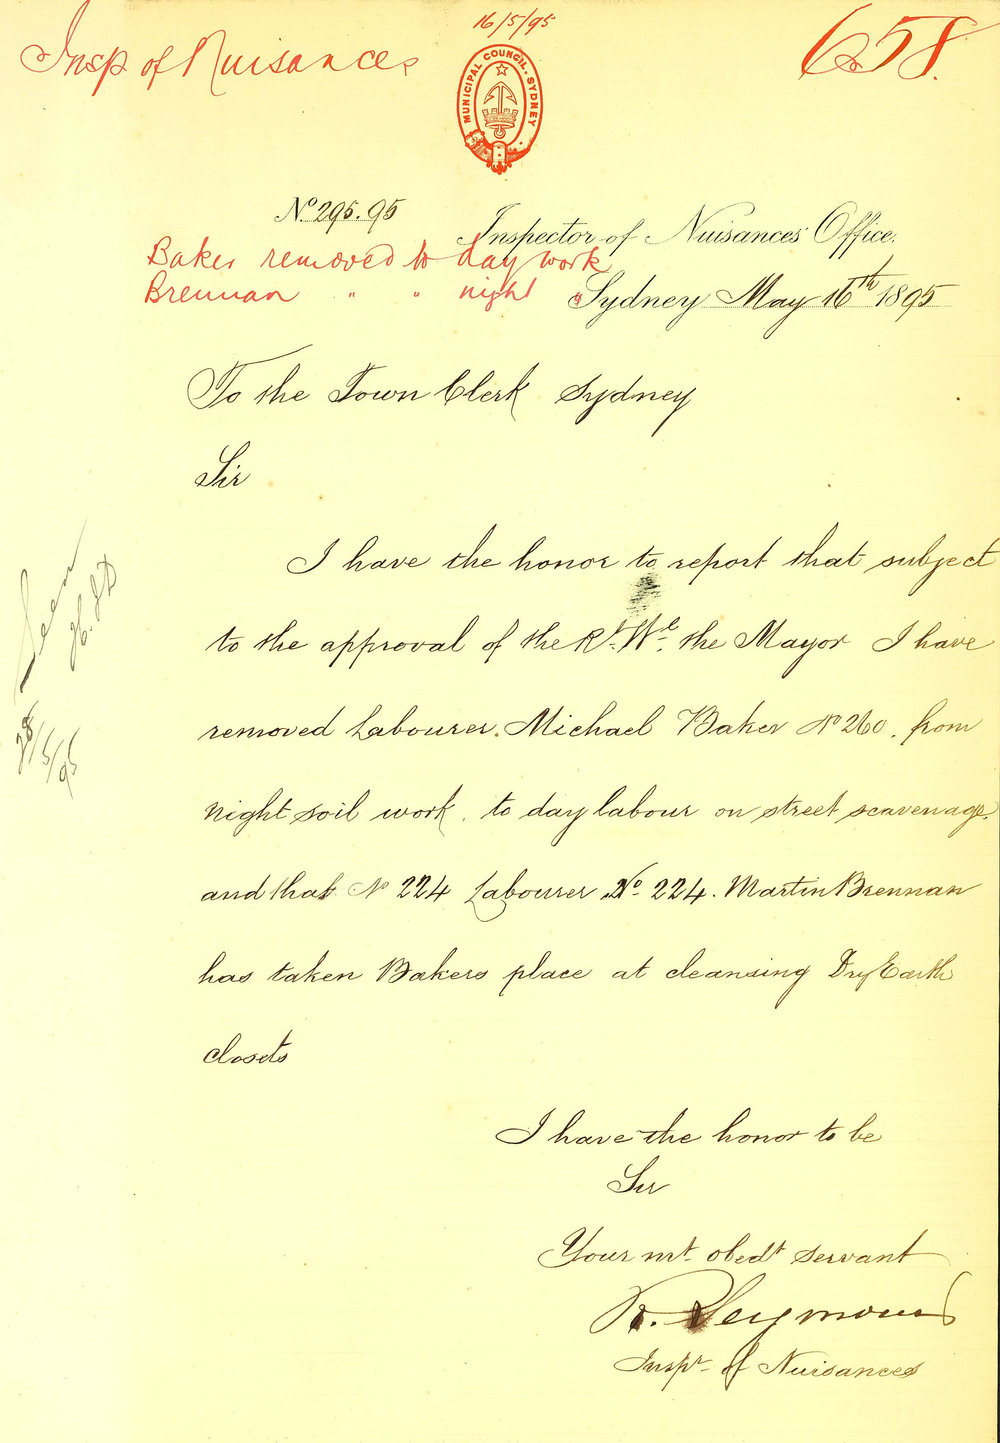 16/5/95
Insp of Nuisances
658.
MUNICIPAL COUNCIL. SYDNEY
No 295.95
Inspector of Nuisances' Office.
Baker removed to day work
Brennan " " night "
Sydney May 16th 1895
To the Town Clerk Sydney
Sir
I have the honor to report that subject
to the approval of the Rt. Wl. the Mayor I have
removed Labourer. Michael Baker No 260. from
night soil work. to day labour on street scavenage.
and that No 224 Labourer No. 224. Martin Brennan
has taken Bakers place at cleansing Dry Earth
closets
I have the honor to be
Sir
Your mt. obedt servant
R. Seymour
Inspr. of Nuisances
Seen
28/5/95